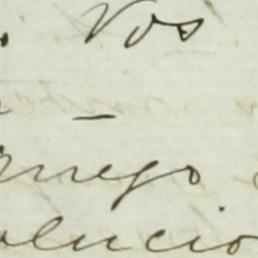 . Vos
-
rnego
olucio